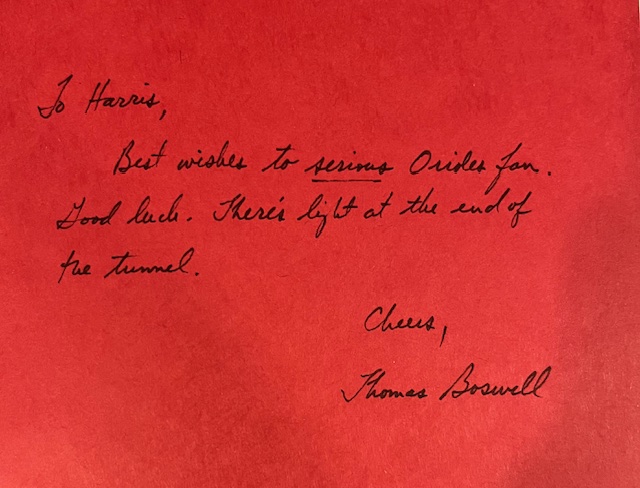 To Harris,
Best wishes to serious Orioles fan.
Good luck. There's light at the end of
the tunnel.
Cheers,
Thomas Boswell